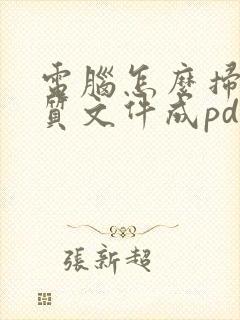 電腦怎麼掃
質文件成pd
張新超